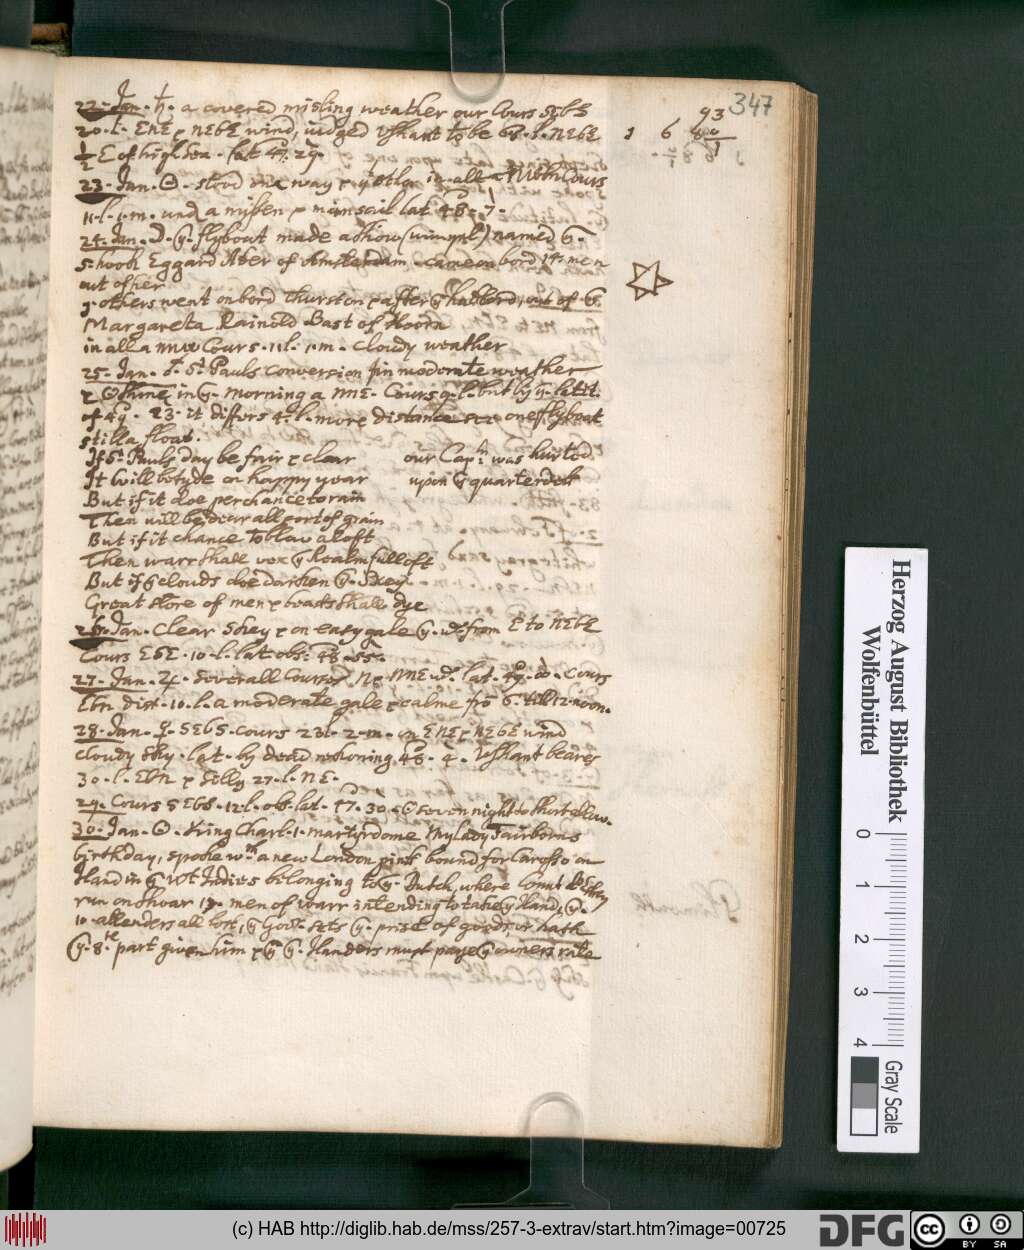 347
93
22. Jan. ♄. a covered misling weather our Cours SEbE
20. l. ENE & NEbE wind, iudged Ushant to be 68. l. NEbE
½ E of high sea. lat 47. 29.
23. Jan. ☉. stood one way & ye other in all a Cours
11. l. 1. m. und a missen & mainsail lat. 48. 7.
24. Jan. ☽. ye. flyboat made a named ye.
S. hook Eggard of Amsterdam came on bord 14. men
out of her
9. others went on bord Thurston & after had bord, out of ye.
Margareta Rainold Bast of Hoorn
in all a NNW Cours. 11 l. 1. m. Cloudy weather
25. Jan. ♂. St. Pauls Conversion fin moderate weather
& ☉ shine in ye. morning a NNE. Cours 9. l. but by ye. latit.
of 49. 23. it differs 4. l. more distance one flyboat
still a float.
If St. Pauls day be fair & clear our Capn. was hurted
It will betyde an happy year upon ye quarterdek
But if it doe perchance to rain
Then will be dear all sort of grain
But if it chance to blow aloft
Then warr shall vex ye Realm full oft
But if ye clouds doe darken ye. Skey
Great store of men & beasts shall dye
26. Jan. Clear skey & an easy gale ye. wd. from E to NEbE
Cours SbE. 10. l. lat obs. 48. 55.
27. Jan. ♃. severall Courses, N & NNE wd. lat. 49. Cours
EbN dist. 10. l. a moderate gale & calme fro 6. till 12. noon.
28. Jan. ♀. SEbS. cours 23 l. 2. m. in ENE & NEbE wind
cloudy sky. lat. by dead reckoning 48. 4. Ushant beares
30. l. EbN & Silly 27. l. NE.
29. Cours SEbS. 12 l. obs. lat. 47. 30.
30. Jan. ☉. King Charl. 1. martyrdome My Lady Fairborns
birthday, spoake wth. a new London pink bound for
Iland in ye Wt. Indies belonging to ye. Dutch, where
run on shoar 19. men of warr intending to take ye Iland, ye.
all lost, ye Govr. gets ye. prise of goods, or hath
ye. 8.te part given him & ye Ilanders must paye ye owners rate
Herzog August Bibliothek
Wolfenbüttel
0 1 2 3 4
Gray Scale
(c) HAB http://diglib.hab.de/mss/257-3-extrav/start.htm?image=00725
DFG
cc BY SA